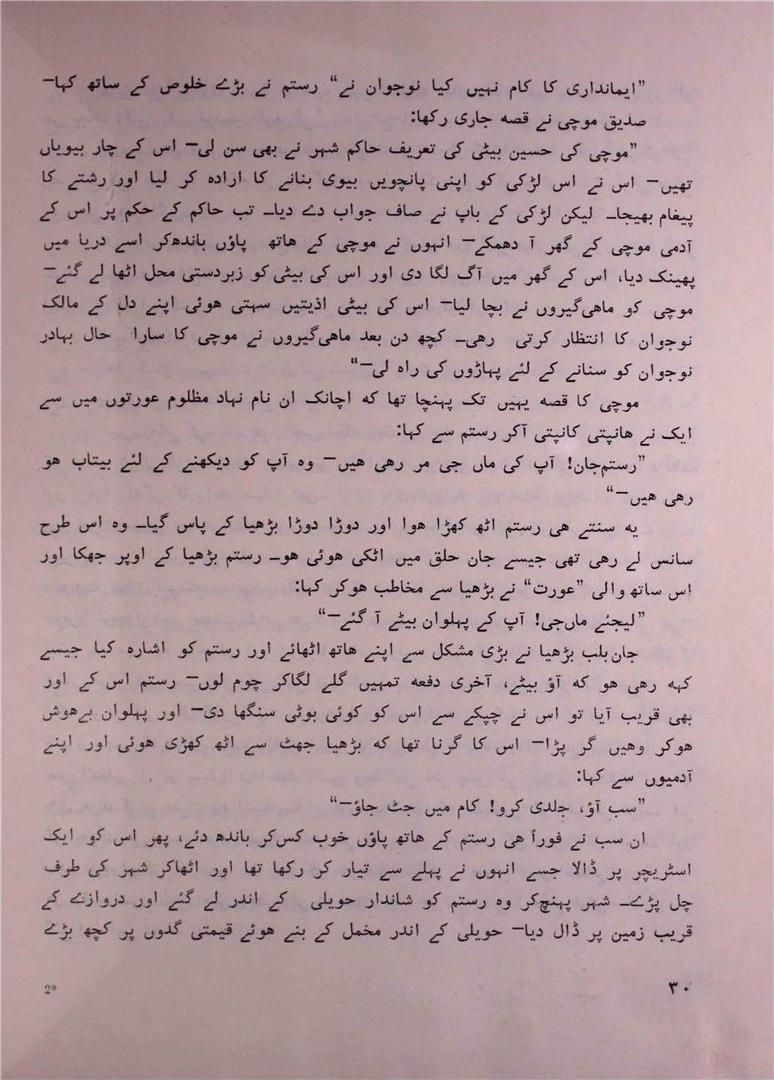 ”ایمانداری کا کام نہیں کیا نوجوان نے“ رستم نے بڑے خلوص کے ساتھ کہا—
صدیق موچی نے قصہ جاری رکھا:
”موچی کی حسین بیٹی کی تعریف حاکم شہر نے بھی سن لی— اس کے چار بیویاں
تھیں— اس نے اس لڑکی کو اپنی پانچویں بیوی بنانے کا ارادہ کر لیا اور رشتے کا
پیغام بھیجا۔ لیکن لڑکی کے باپ نے صاف جواب دے دیا۔ تب حاکم کے حکم پر اس کے
آدمی موچی کے گھر آ دھمکے— انہوں نے موچی کے ہاتھ پاؤں باندھ‌کر اسے دریا میں
پھینک دیا، اس کے گھر میں آگ لگا دی اور اس کی بیٹی کو زبردستی محل اٹھا لے گئے—
موچی کو ماہی‌گیروں نے بچا لیا— اس کی بیٹی اذیتیں سہتی ہوئی اپنے دل کے مالک
نوجوان کا انتظار کرتی رہی۔ کچھ دن بعد ماہی‌گیروں نے موچی کا سارا حال بہادر
نوجوان کو سنانے کے لئے پہاڑوں کی راہ لی—“
موچی کا قصہ یہیں تک پہنچا تھا کہ اچانک ان نام نہاد مظلوم عورتوں میں سے
ایک نے ہانپتی کانپتی آکر رستم سے کہا:
”رستم‌جان! آپ کی ماں جی مر رہی ہیں— وہ آپ کو دیکھنے کے لئے بیتاب ہو
رہی ہیں—“
یہ سنتے ہی رستم اٹھ کھڑا ہوا اور دوڑا دوڑا بڑھیا کے پاس گیا۔ وہ اس طرح
سانس لے رہی تھی جیسے جان حلق میں اٹکی ہوئی ہو۔ رستم بڑھیا کے اوپر جھکا اور
اس ساتھ والی ”عورت“ نے بڑھیا سے مخاطب ہوکر کہا:
”لیجئے ماں‌جی! آپ کے پہلوان بیٹے آ گئے—“
جان‌بلب بڑھیا نے بڑی مشکل سے اپنے ہاتھ اٹھائے اور رستم کو اشارہ کیا جیسے
کہہ رہی ہو کہ آؤ بیٹے، آخری دفعہ تمہیں گلے لگاکر چوم لوں— رستم اس کے اور
بھی قریب آیا تو اس نے چپکے سے اس کو کوئی بوٹی سنگھا دی— اور پہلوان بے‌ہوش
ہوکر وہیں گر پڑا— اس کا گرنا تھا کہ بڑھیا جھٹ سے اٹھ کھڑی ہوئی اور اپنے
آدمیوں سے کہا:
”سب آؤ، جلدی کرو! کام میں جٹ جاؤ—“
ان سب نے فوراً ہی رستم کے ہاتھ پاؤں خوب کس‌کر باندھ دئے، پھر اس کو ایک
اسٹریچر پر ڈالا جسے انہوں نے پہلے سے تیار کر رکھا تھا اور اٹھاکر شہر کی طرف
چل پڑے۔ شہر پہنچ‌کر وہ رستم کو شاندار حویلی کے اندر لے گئے اور دروازے کے
قریب زمین پر ڈال دیا— حویلی کے اندر مخمل کے بنے ہوئے قیمتی گدوں پر کچھ بڑے
۳۰
2*